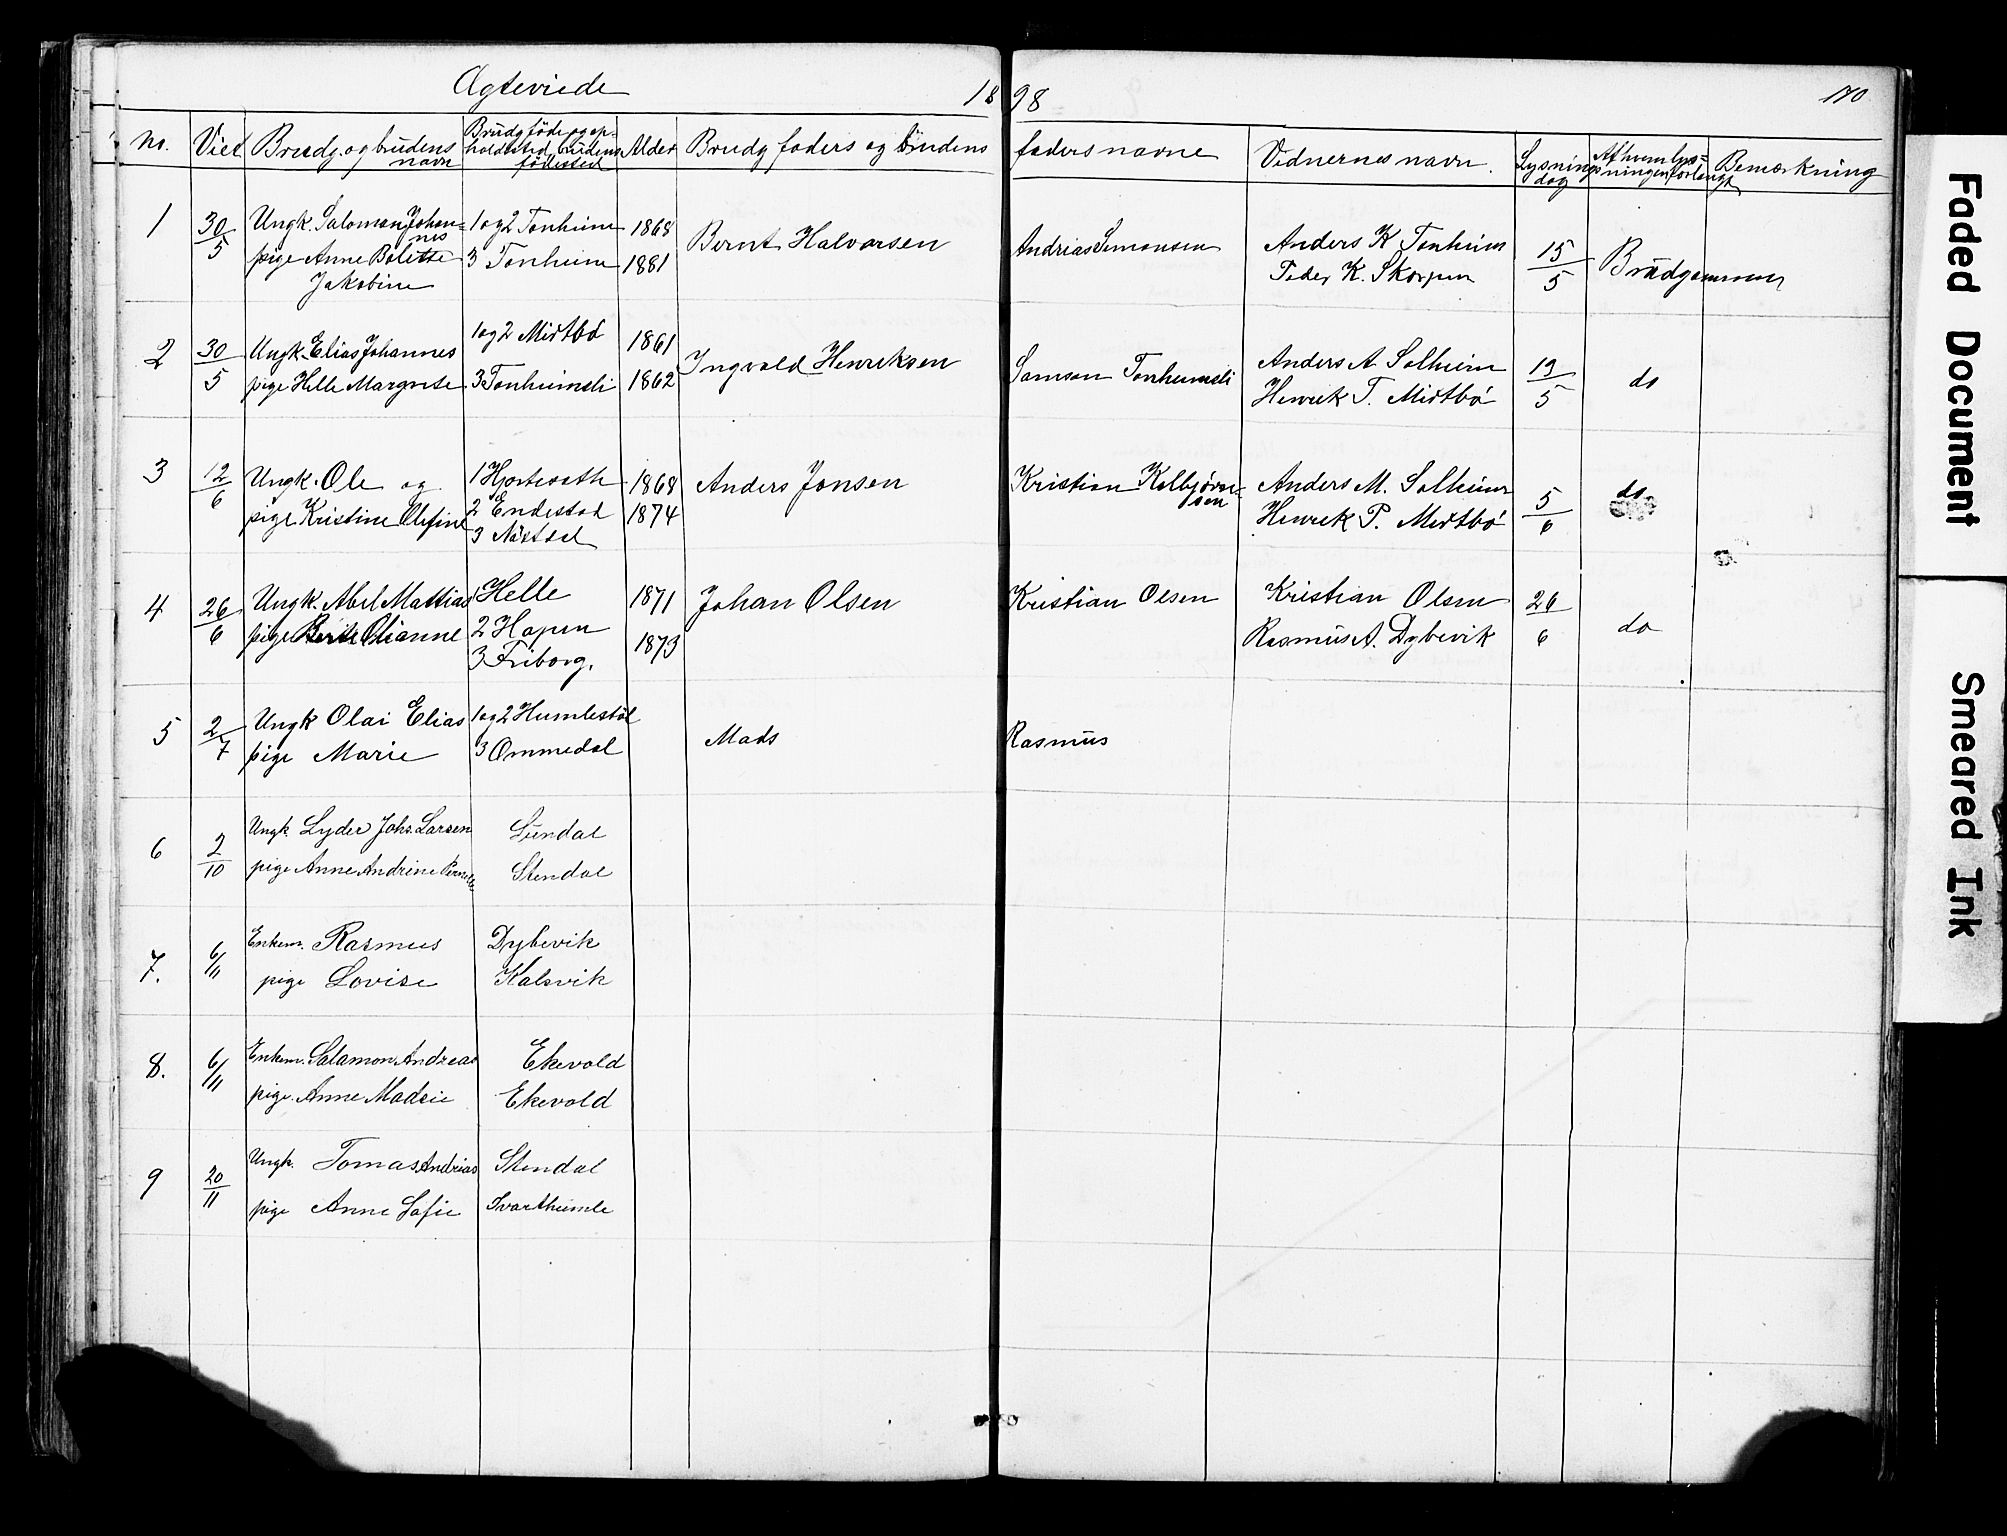 Ægteviede 1898 170
No. Viet Brudg. og brudens navn Brudg føde og opholdssted, brudens fødested Alder Brudg faders og brudens faders navne Vidnernes navn. Lysnings dag Af hvem lysningen forlangt Bemærkning
1 30/5 Ungk. Salomon Johannes 1 og 2 Tonheim 1868 Bernt Halvorsen Andrias Simonsen Anders K Tonheim 15/5 Brudgommen
pige Anne Bolette 3 Tonheim 1881 Peder K. Skorpen
Jakobine
2 30/5 Ungk. Elias Johannes 1 og 2 Midtbö 1861 Ingvald Henriksen Samson Tonheimsli Anders A Solheim 19/5 do
pige Helle Margrete 3 Tonheimsli 1862 Henrik T. Midtbö
3 12/6 Ungk. Ole og 1 Hjorteseth 1868 Anders Jonsen Kristian Kolbjørnsen Anders M. Solheim 5/6 do
pige Kristine Olefine 2 Endestad 1874 Henrik P. Midtbö
3 Nästad
4 26/6 Ungk. Abel Mattias 1 Helle 1871 Johan Olsen Kristian Olsen Kristian Olsen 26/6 do
pige Berte Olianne 2 Hopen 1873 Rasmus A. Dybevik
3 Friborg.
5 2/7 Ungk Olai Elias 1 og 2 Humlestöl Mads Rasmus
pige Marie 3 Ommedal
6 2/10 Ungk. Lyder Johs. Larsen Sundal
pige Anne Andrine Pernelle Stendal
7. 6/11 Enkem. Rasmus Dybevik
pige Lovise Kalsvik
8. 6/11 Enkem. Salamon Andreas Ekevold
pige. Anne Madsie Ekevold
9 20/11 Ungk. Tomas Andrias Stendal
pige Anne Sofie Svarthumle
Faded Document
Smeared Ink